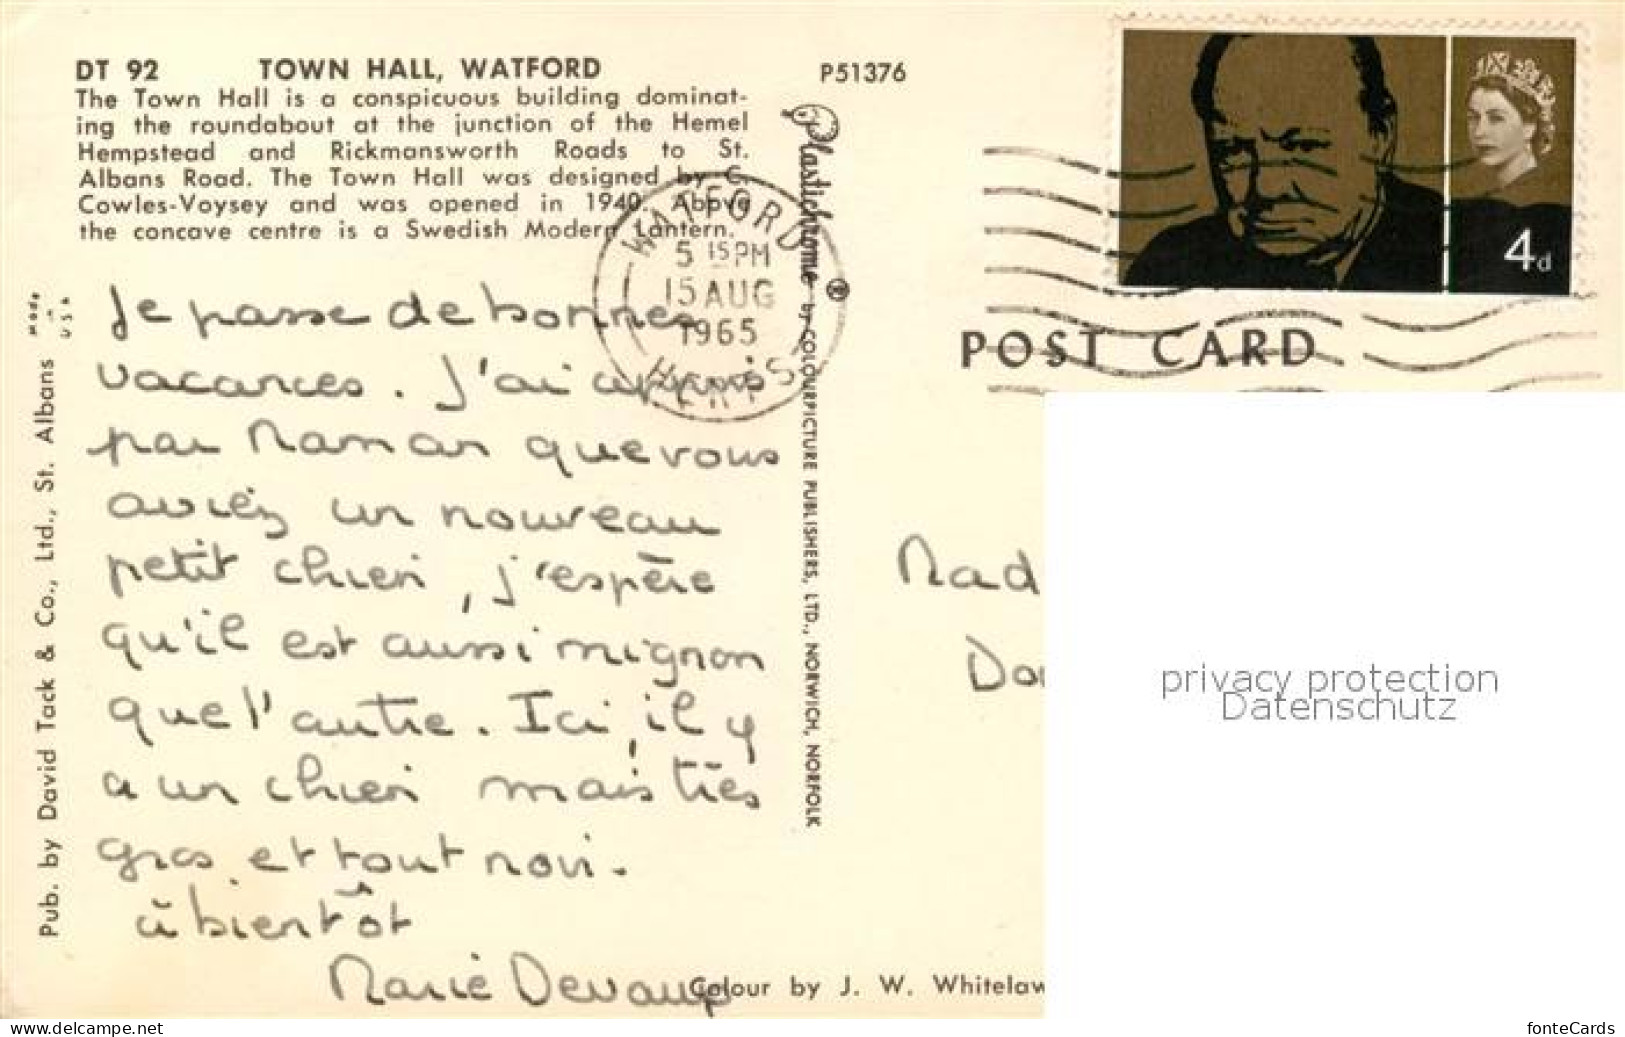 DT 92 TOWN HALL, WATFORD
The Town Hall is a conspicuous building dominat-
ing the roundabout at the junction of the Hemel
Hempstead and Rickmansworth Roads to St.
Albans Road. The Town Hall was designed by C.
Cowles-Voysey and was opened in 1940. Above
the concave centre is a Swedish Modern Lantern.
P51376
Je passe de bonnes
vacances. J'ai appris
par Maman que vous
aviez un nouveau
petit chien, j'espère
qu'il est aussi mignon
que l'autre. Ici, il y
a un chien mais très
gros et tout noir.
à bientôt
Marie
Pub. by David Tack & Co., Ltd., St. Albans
Made
in
USA
Plastichrome ® by COLOURPICTURE PUBLISHERS, LTD., NORWICH, NORFOLK
WATFORD
5 15 PM
15 AUG
1965
HERTS
4d
POST CARD
Mad
Do
privacy protection
Datenschutz
Colour by J. W. Whitelaw
www.delcampe.net
fonteCards